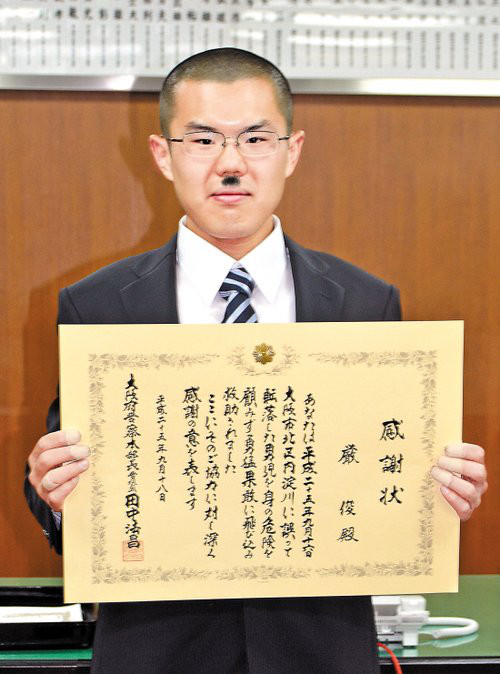 感謝状
厳 俊殿
あなたは平成二五年九月十六日
大阪市北区内淀川に誤って
転落した男児を身の危険を
顧みず勇猛果敢に飛び込み
救助されました
ここにそのご協力に対し深く
感謝の意を表します
平成二五年九月十八日
大阪府警察本部長
田中法昌